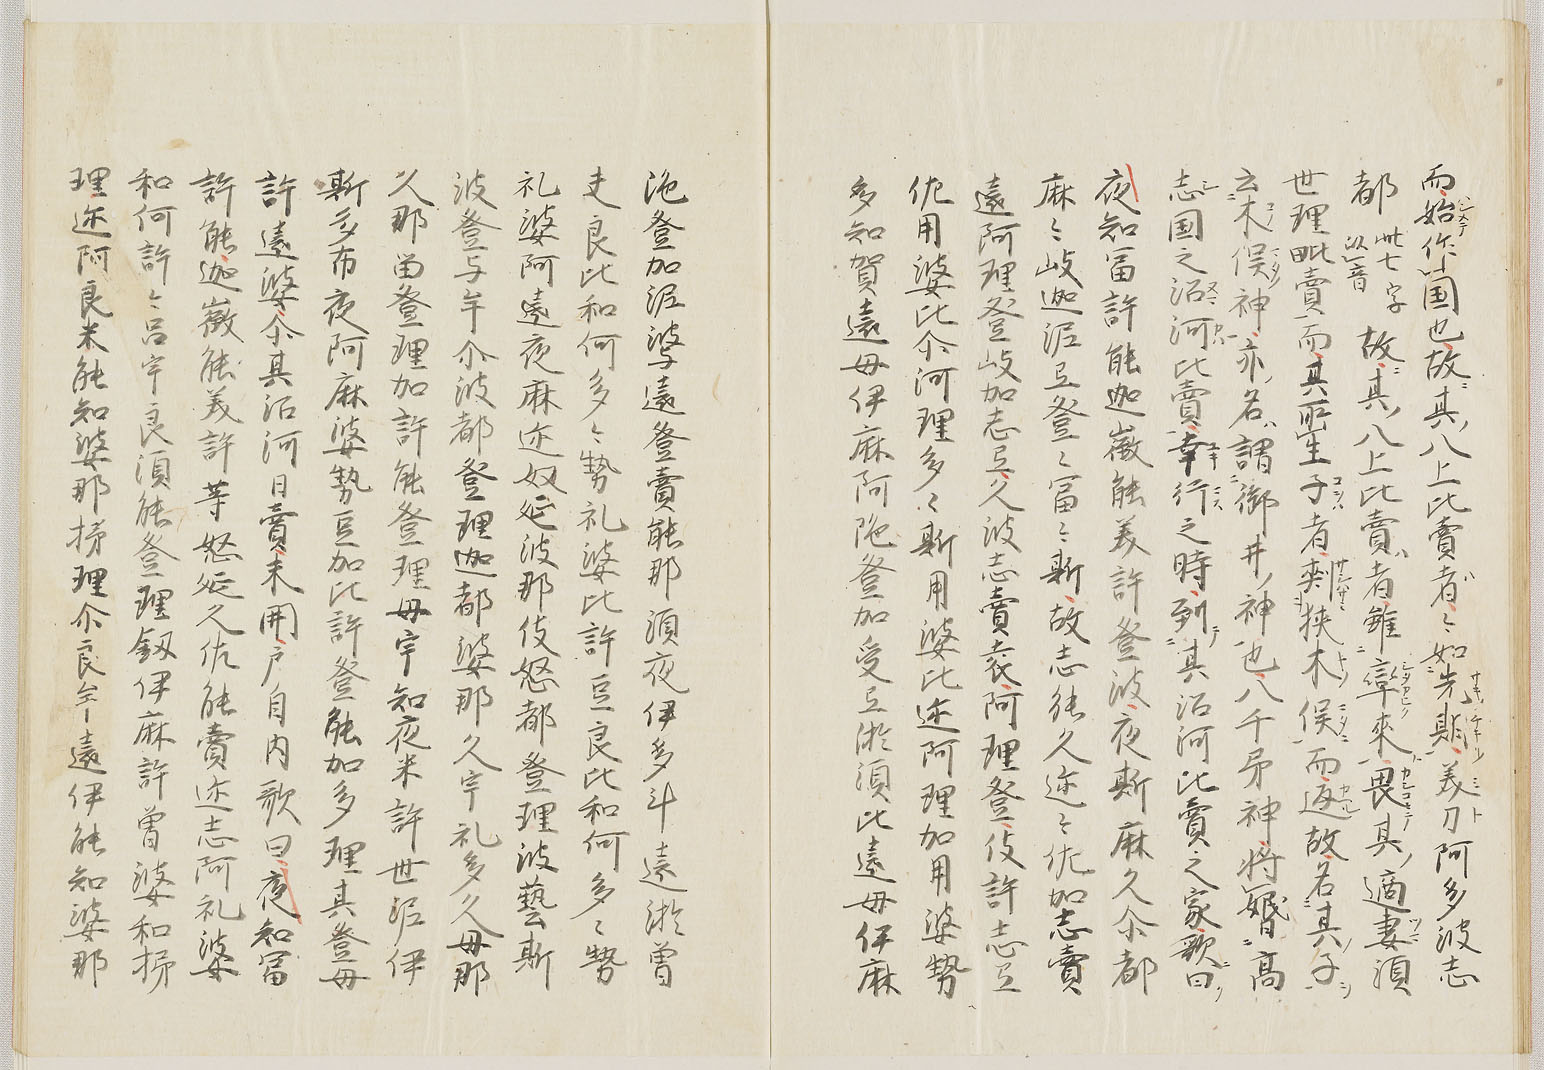 而始作国也故其八上比賣者〻如先期義刀阿多波志
都 此七字以音 故其八上比賣者雖率來畏其適妻須
世理毗賣而其所生子者刺挾木俣而返故名其子
云木俣神亦名謂御井神也八千矛神将婚高
志国之沼河比賣幸行之時到其沼河比賣之家歌曰
夜知富許能迦微能美許登波夜斯麻久尒都
麻〻岐迦泥弖登〻富〻斯故志能久迩〻佐加志賣
遠阿理登岐加志弖久波志賣遠阿理登伎許志弖
佐用婆比尒阿理多〻斯用婆比迩阿理加用婆勢
多知賀遠母伊麻陀登加受弖淤須比遠母伊麻
陀登加泥婆遠登賣能那須夜伊多斗遠淤曽
夫良比和何多〻勢礼婆比許豆良比和何多〻勢
礼婆阿遠夜麻迩奴延波那伎怒都登理波藝斯
波登与牟尒波都登理迦都婆那久宇礼多久母那
久那留登理加許能登理母宇知夜米許世泥伊
斯多布夜阿麻婆勢豆加比許登能加多理其登母
許遠婆尒其沼河日賣未開戸自内歌曰夜知冨
許能迦微能美許等怒延久佐能賣迩志阿礼婆
和何許〻呂宇良須能登理釼伊麻許曽婆和杼
理迩阿良米能知婆那杼理尒良牟遠伊能知婆那